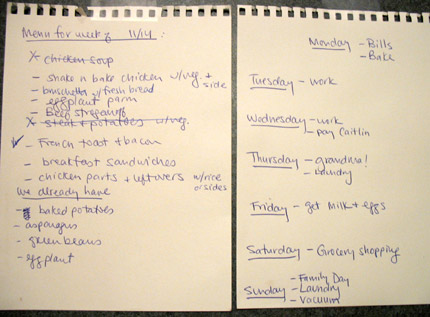 Menu for week of 11/14:
X chicken soup
- shake n bake chicken w/veg. + side
- bruschetta w/fresh bread
- eggplant parm
- Beef stroganoff
X steak + potatoes w/veg.
✓ - French toast + bacon
- breakfast sandwiches
- chicken parts + leftovers w/rice or sides
we already have
- baked potatoes
- asparagus
- green beans
- eggplant
Monday - Bills
- Bake
Tuesday - work
Wednesday - work
- pay Caitlin
Thursday - grandma!
- laundry
Friday - get milk + eggs
Saturday - Grocery shopping
- Family Day
Sunday - Laundry
- Vacuum